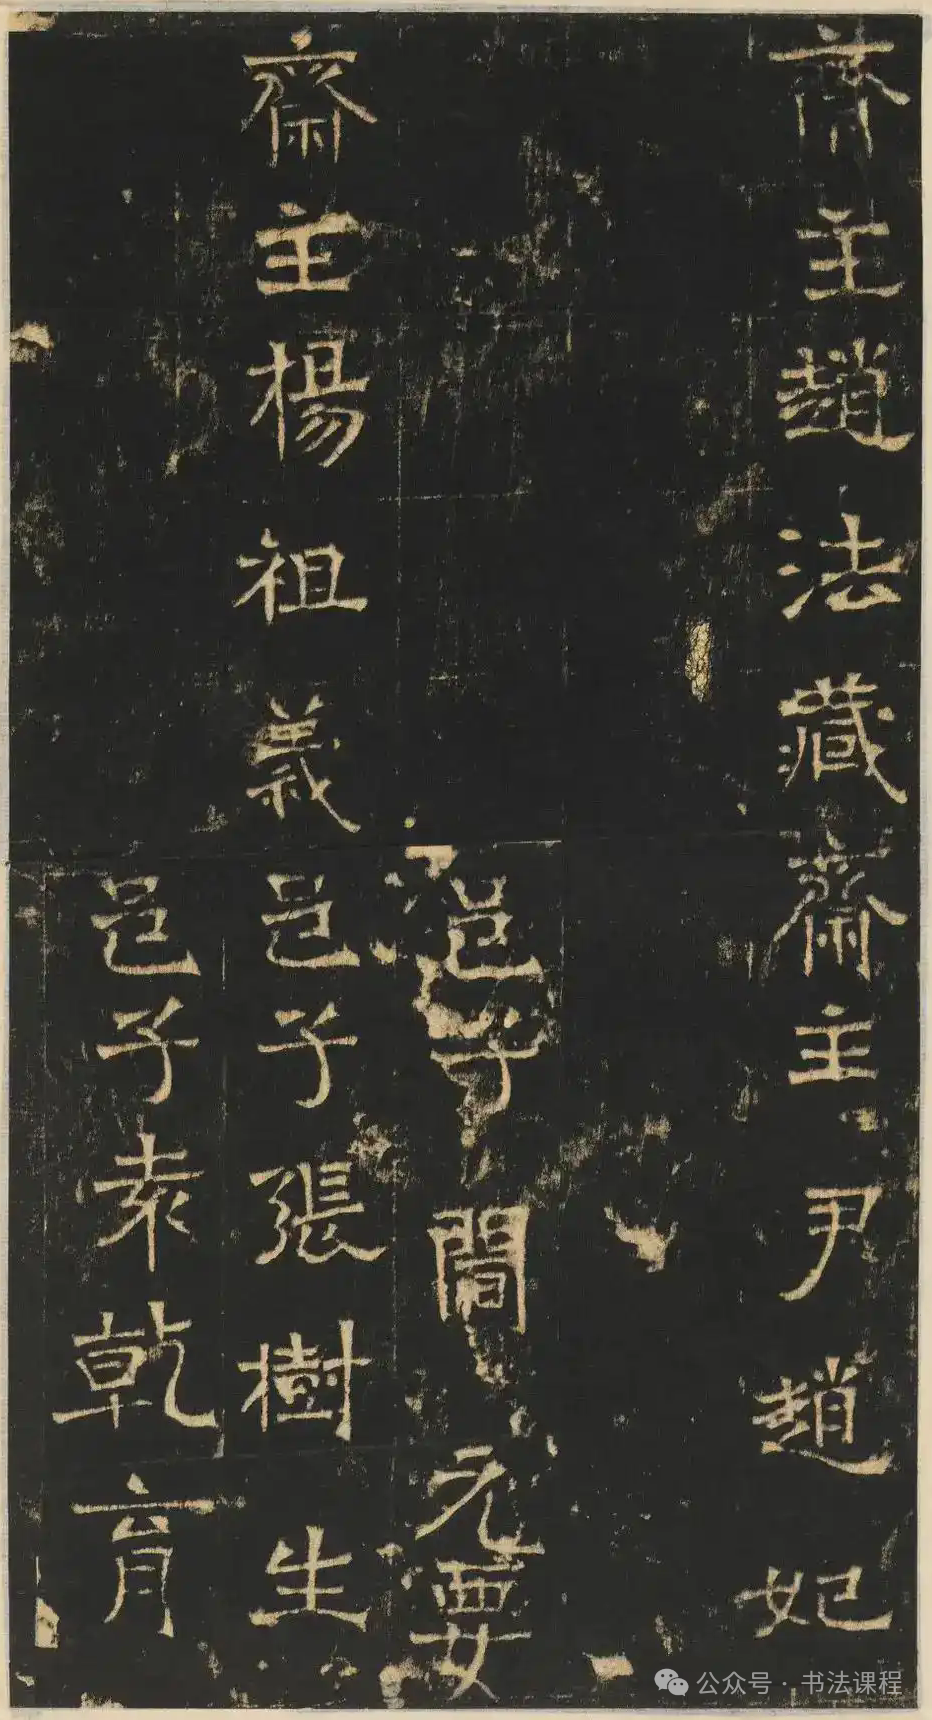 齋主趙法藏齋主尹趙妃
邑子閻元要
齋主楊祖義邑子張樹生
邑子袁乾育
公众号 · 书法课程